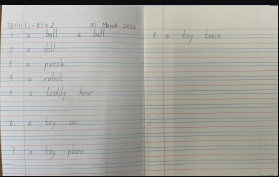 19 March 2024
1 a ball a ball
2 a doll
3 a puzzle
4 a robot
5 a teddy bear
6 a toy car
7 a toy plane
8 a toy train